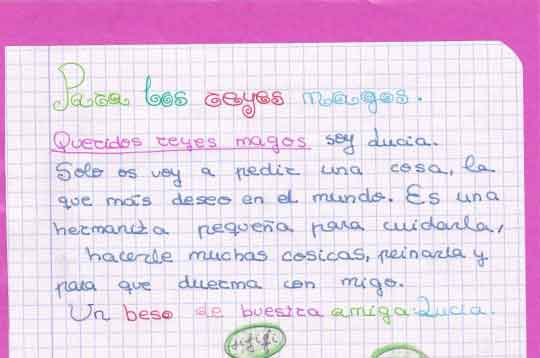 Para los reyes magos.
Queridos reyes magos soy ducia.
Solo os voy a pedir una cosa, la
que más deseo en el mundo. Es una
hermanita pequeña para cuidarla,
hacerle muchas cosicas, peinarla y
para que duerma con migo.
Un beso de buestra amiga: Lucia.
jijiji